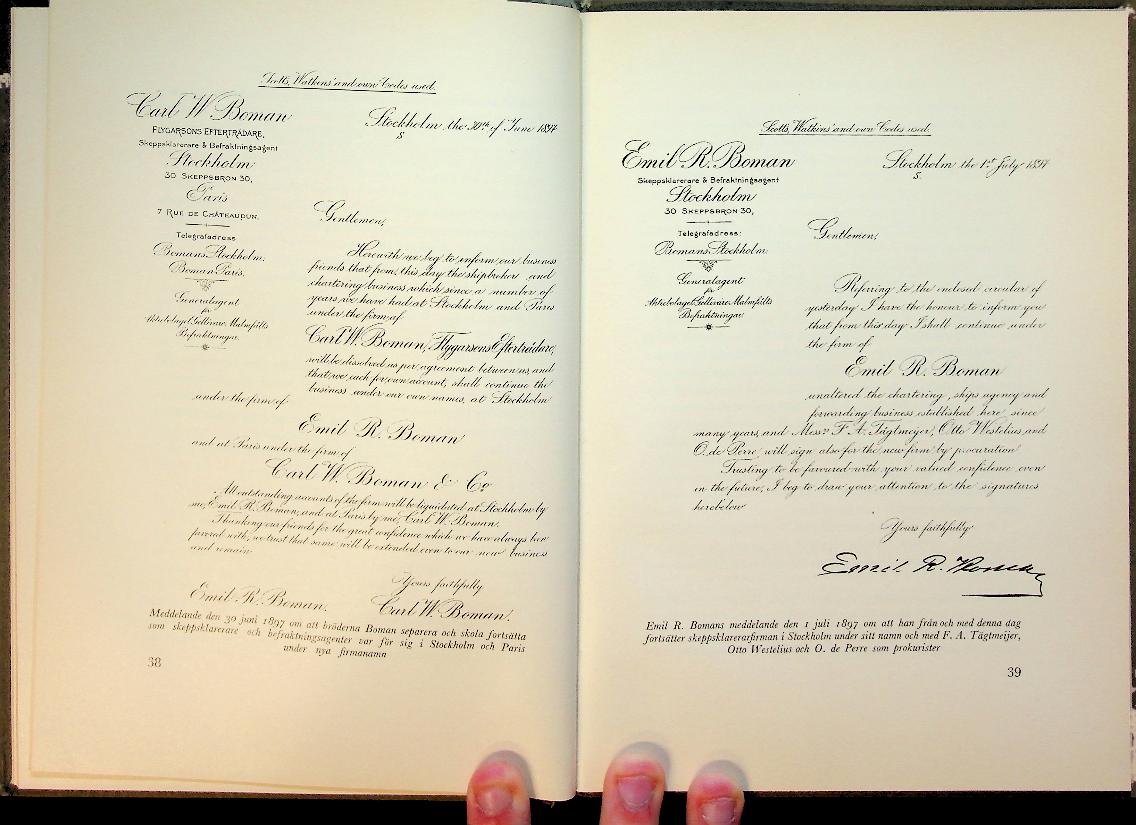 Scotts, Watkins' and own Codes used.
Carl W Boman
FLYGARSONS EFTERTRÄDARE,
Skeppsklarerare & Befraktningsagent
Stockholm
30 SKEPPSBRON 30,
Paris
7 RUE DE CHÂTEAUDUN.
Telegrafadress
Bomans, Stockholm.
Boman Paris.
Generalagent
för
Aktiebolaget Gellivare Malmfälts
Befraktningar.
Stockholm the 30th of June 1897
S
Gentlemen,
Herewith we beg to inform our business
friends that from this day the shipbroker and
chartering business which since a number of
years we have had at Stockholm and Paris
under the firm of
Carl W. Boman, Flygarsons Efterträdare,
will be dissolved as per agreement between us, and
that we, each for own account, shall continue the
business under our own names, at Stockholm
under the firm of
Emil R. Boman
and at Paris under the firm of
Carl W. Boman & Co
All outstanding accounts of the firm will be liquidated at Stockholm by
me, Emil R. Boman, and at Paris by me, Carl W. Boman.
Thanking our friends for the great confidence which we have always been
favored with, we trust that same will be extended even to our new business
and remain
Yours faithfully
Emil R. Boman. Carl W. Boman.
Meddelande den 30 juni 1897 om att bröderna Boman separera och skola fortsätta
som skeppsklarerare och befraktningsagenter var för sig i Stockholm och Paris
under nya firmanamn
38
Scotts, Watkins' and own Codes used.
Emil R. Boman
Skeppsklarerare & Befraktningsagent
Stockholm
30 SKEPPSBRON 30,
Telegrafadress:
Bomans, Stockholm.
Generalagent
för
Aktiebolaget Gellivare Malmfälts
Befraktningar.
Stockholm the 1st July 1897
S.
Gentlemen,
Referring to the enclosed circular of
yesterday I have the honour to inform you
that from this day I shall continue under
the firm of
Emil R. Boman
unaltered the chartering, ships agency and
forwarding business established here since
many years, and Messrs F. A. Tägtmeijer, Otto Westelius and
O. de Perre, will sign also for the new firm by procuration
Trusting to be favoured with your valued confidence even
in the future, I beg to draw your attention to the signatures
herebelow
Yours faithfully
Emil R. Boman
Emil R. Bomans meddelande den 1 juli 1897 om att han från och med denna dag
fortsätter skeppsklarerafirman i Stockholm under sitt namn och med F. A. Tägtmeijer,
Otto Westelius och O. de Perre som prokurister
39